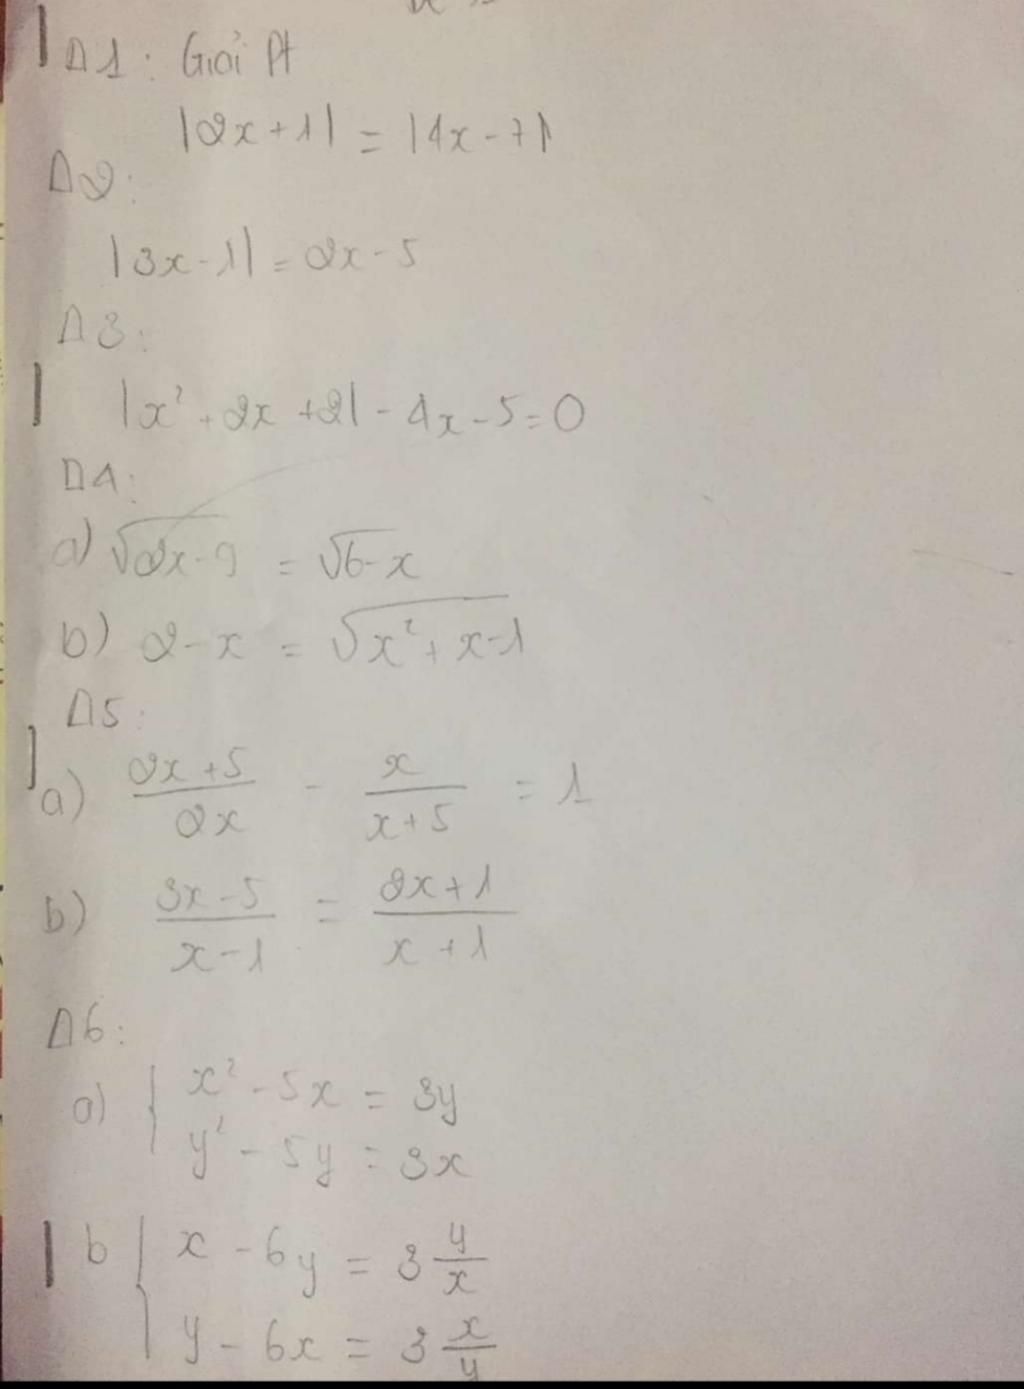 Δ1: Giải Pt
|2x+1| = |4x-7|
Δ2:
|3x-1| = 2x-5
Δ3:
|x²+2x+2| - 4x-5=0
Δ4:
a) √2x-9 = √6-x
b) 2-x = √x²+x-1
Δ5:
a) 2x+5/2x - x/x+5 = 1
b) 3x-5/x-1 = 2x+1/x+1
Δ6:
a) { x²-5x = 3y
y²-5y = 3x
b { x-6y = 3 y/x
y-6x = 3 x/y